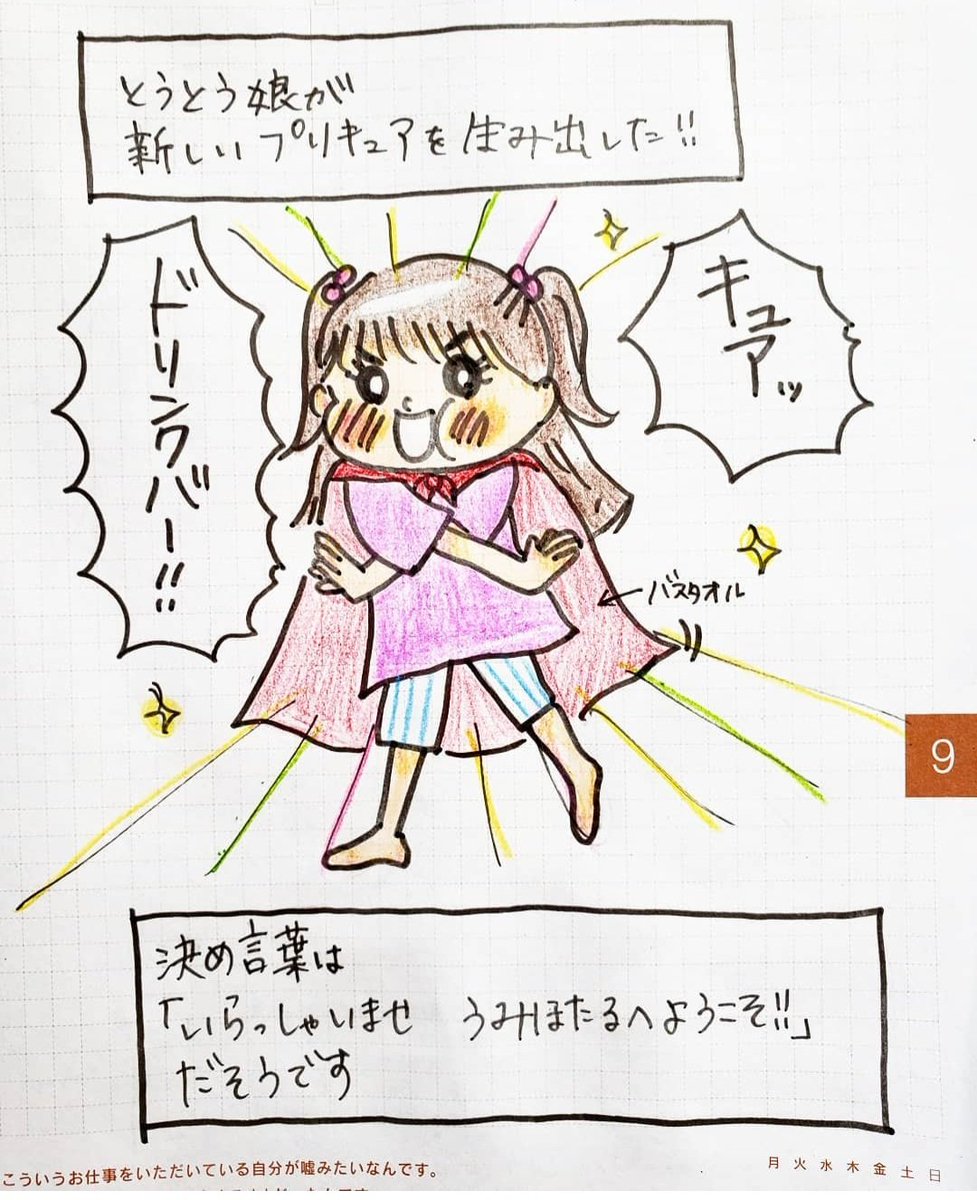 とうとう娘が
新しいプリキュアを生み出した!!
キュアッ
ドリンクバー!!
バスタオル
9
決め言葉は
「いらっしゃいませ　うみほたるへようこそ!!」
だそうです
こういうお仕事をいただいている自分が嘘みたいなんです。
月 火 水 木 金 土 日